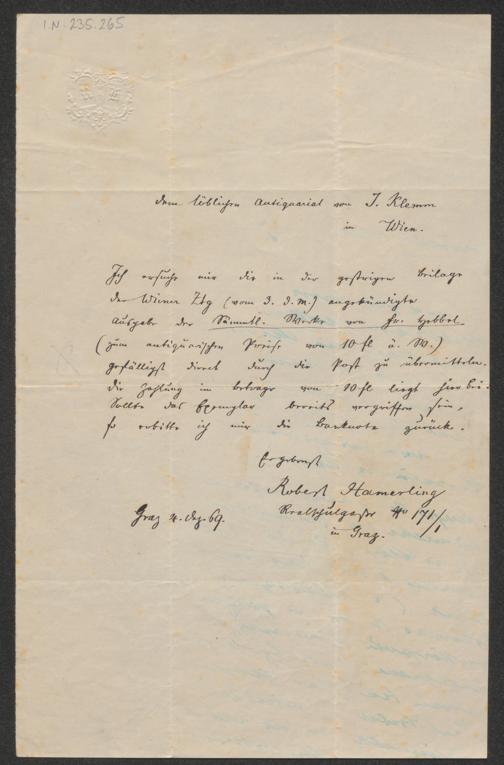 I.N. 235.265
Dem löblichen Antiquariat von J. Klemm
in Wien.
Ich ersuche mir die in der gestrigen Beilage
der Wiener Ztg (vom 3. d. M.) angekündigte
Ausgabe der Sämmtl. Werke von Fr. Hebbel
(zum antiquarischen Preise von 10 fl ö. W.)
gefälligst direct durch die Post zu übermitteln.
Die Zahlung im Betrage von 10 fl liegt hier bei.
Sollte das Exemplar bereits vergriffen sein,
so erbitte ich mir die Banknote zurück.
Ergebenst
Robert Hamerling
Graz 4. Dez. 69.
Realschulgasse No 171/1
in Graz.